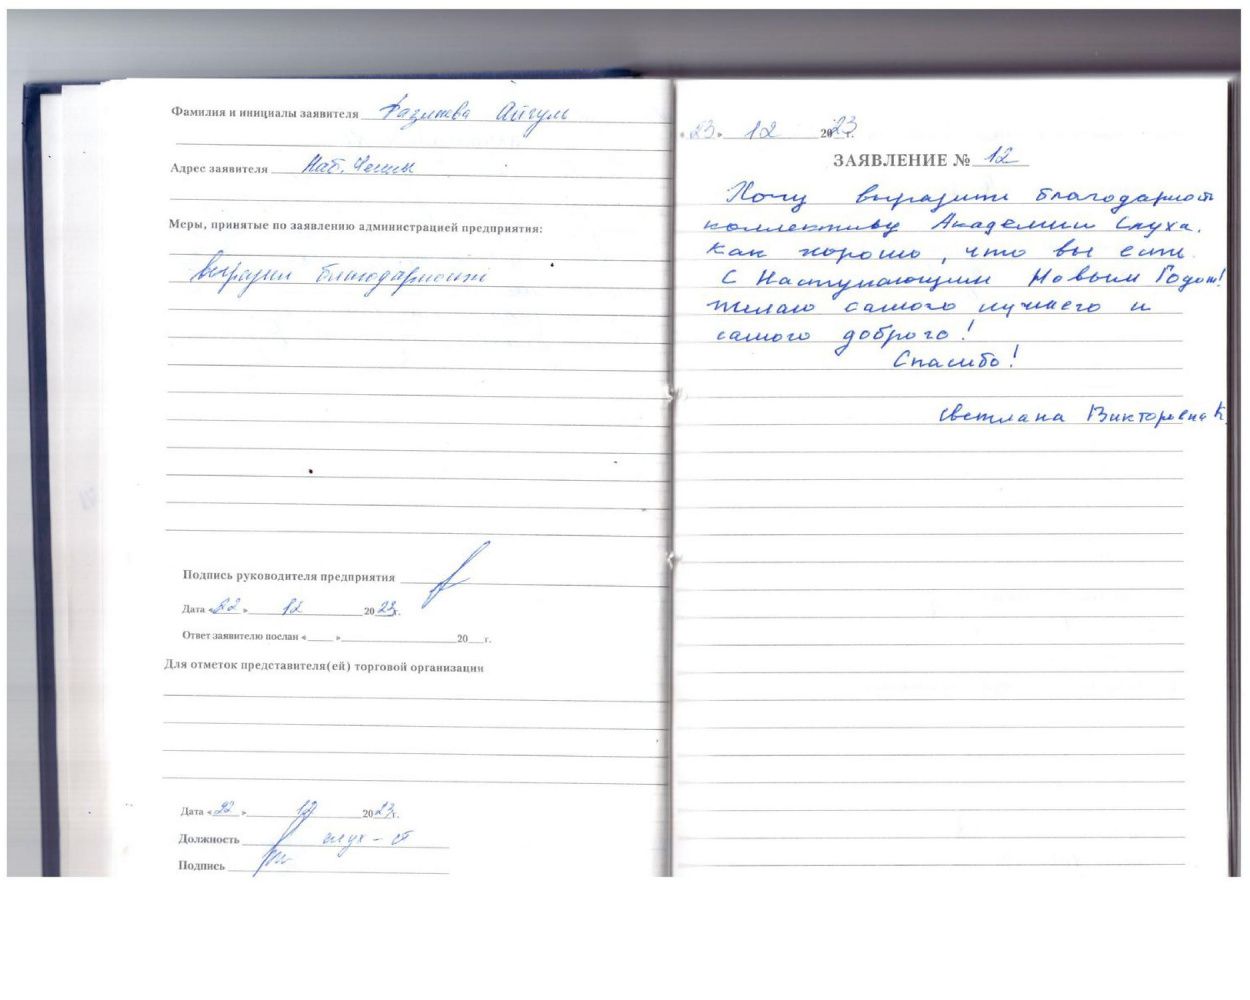 Фамилия и инициалы заявителя Айгуль
Адрес заявителя Наб. Челны
Меры, принятые по заявлению администрацией предприятия:
благодарность
Подпись руководителя предприятия
Дата «22» 12 2023г.
Ответ заявителю послан «___»___20__г.
Для отметок представителя(ей) торговой организации
Дата «22» 12 2023г.
Должность
Подпись
«23» 12 2023г.
ЗАЯВЛЕНИЕ № 12
Хочу выразить благодарность
коллективу Академии Слуха.
Как хорошо, что вы есть.
С Наступающим Новым Годом!
Желаю самого лучшего и
самого доброго!
Спасибо!
Светлана Викторовна К.